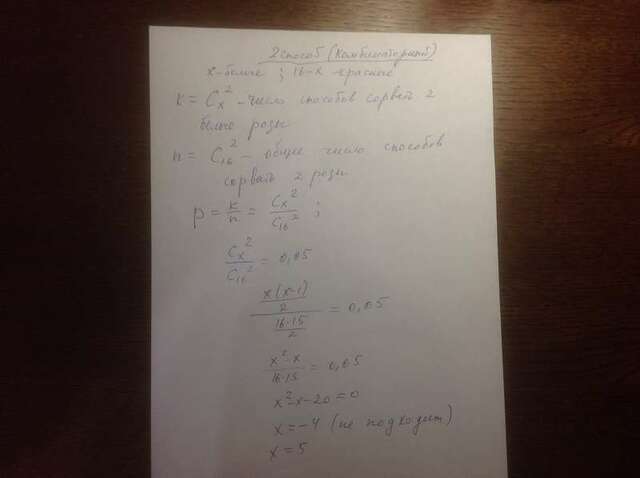 2 способ (комбинаторный)
x - белые ; 16-x - красные
k = Cₓ² - число способов сорвать 2
белые розы
n = C₁₆² - общее число способов
сорвать 2 розы
p = k/n = Cₓ²/C₁₆² ;
Cₓ²/C₁₆² = 0,05
(x(x-1)/2)/(16·15/2) = 0,05
(x²-x)/(16·15) = 0,05
x²-x-20=0
x=-4 (не подходит)
x=5